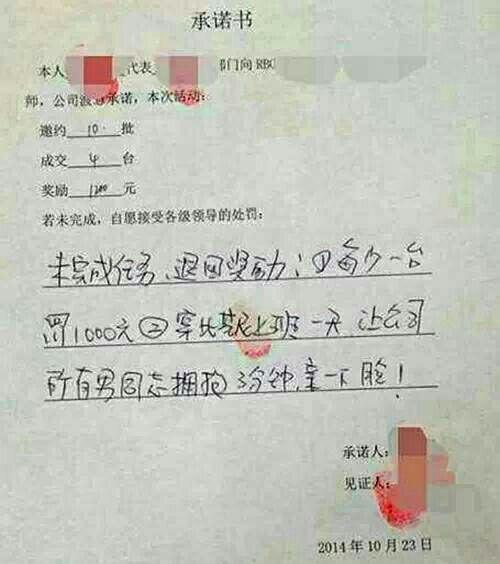 承诺书
本人 代表 部门向RBC
师,公司 承诺,本次活动:
邀约 10 批
成交 4 台
奖励 1200 元
若未完成,自愿接受各级领导的处罚:
未完成任务、退回奖励;①每少一台
罚1000元②穿比基尼上班一天,让公司
所有男同志拥抱3分钟,亲一下脸!
承诺人:
见证人:
2014年10月23日